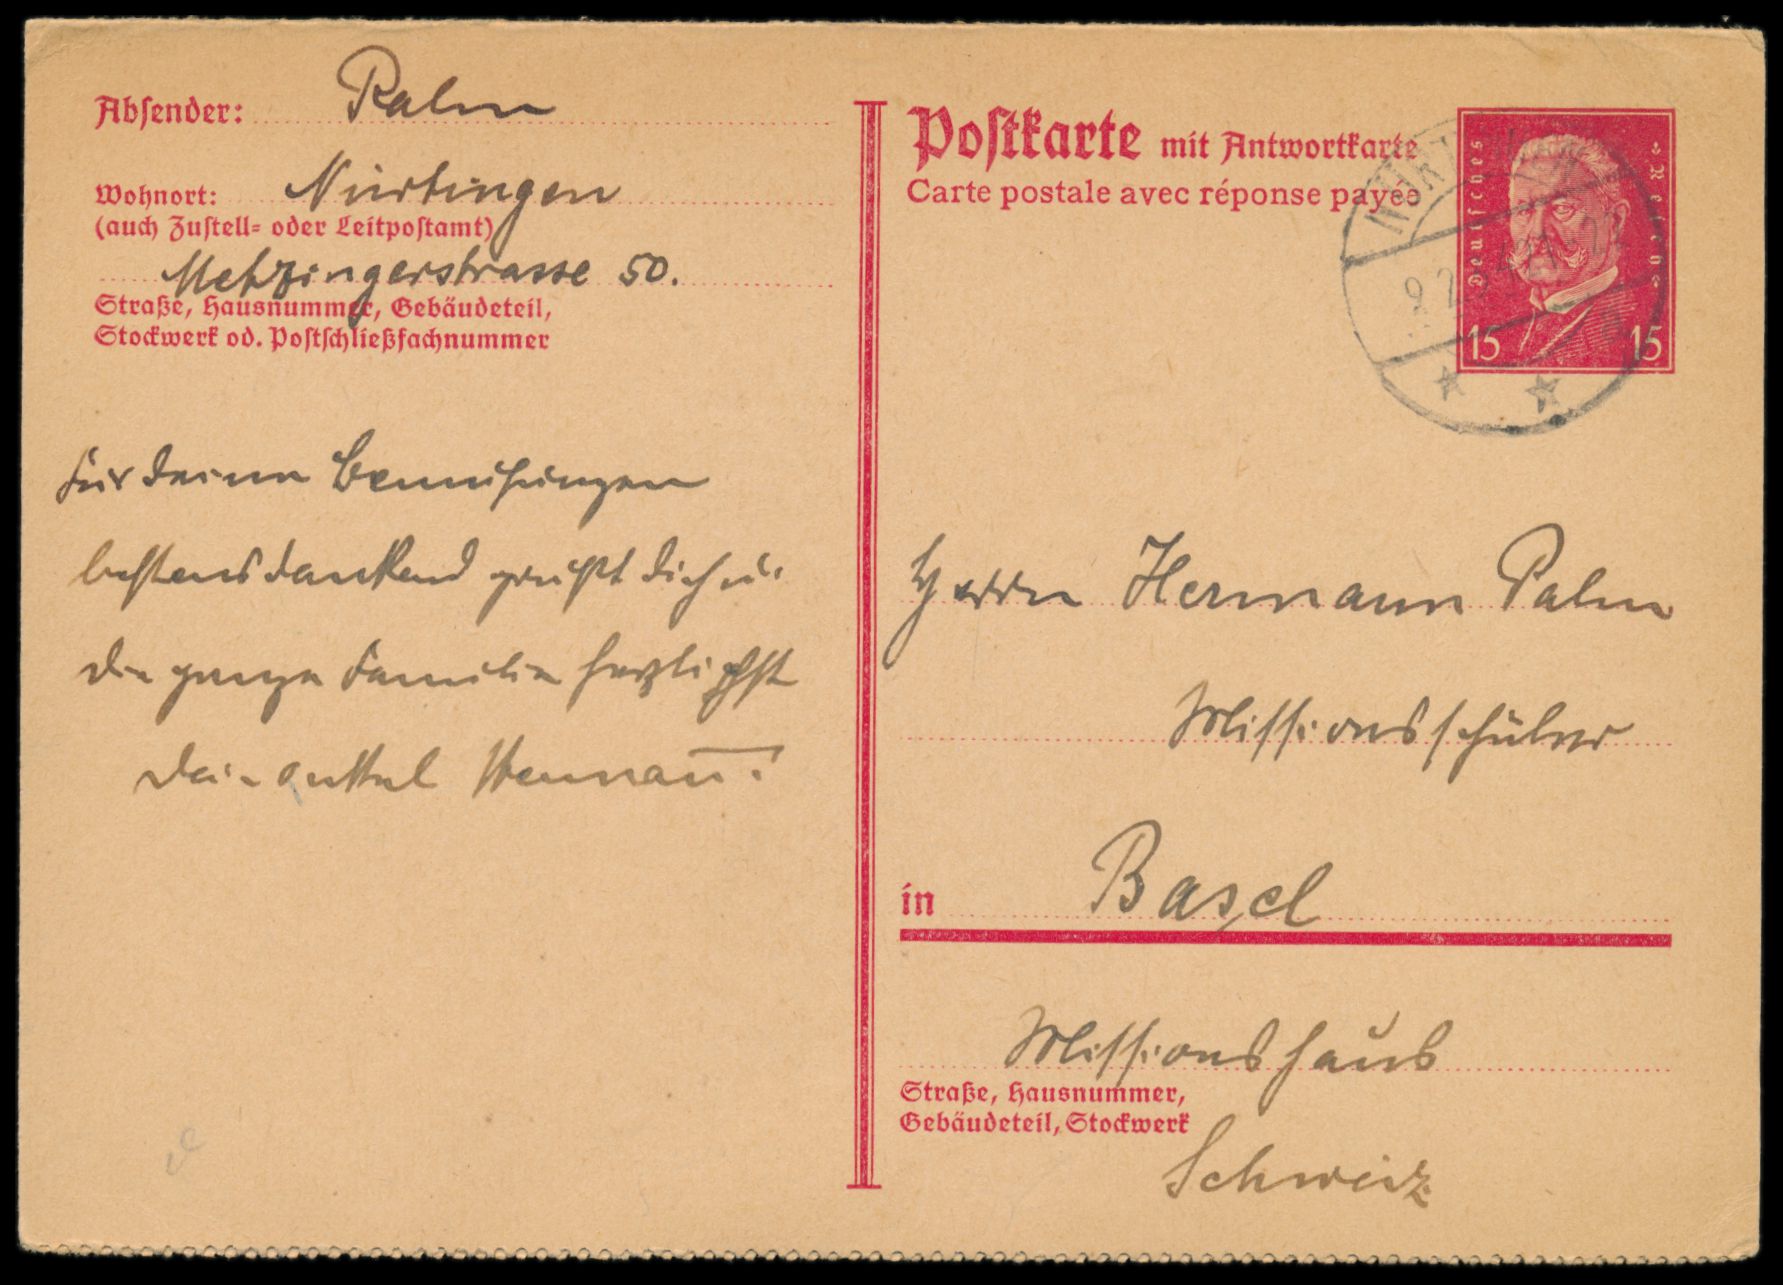 Absender: Palm
Wohnort: Nürtingen
(auch Zustell= oder Leitpostamt)
Metzingerstrasse 50.
Straße, Hausnummer, Gebäudeteil,
Stockwerk od. Postschließfachnummer
Für deine Bemühungen
bestens dankend grüßt dich u.
die ganze Familie herzlichst
dein Onkel Hermann.
Postkarte mit Antwortkarte
Carte postale avec réponse payée
Deutsches Reich
15 15
NÜRTINGEN
Herrn Hermann Palm
Missionsschüler
in Basel
Missionshaus
Straße, Hausnummer,
Gebäudeteil, Stockwerk
Schweiz